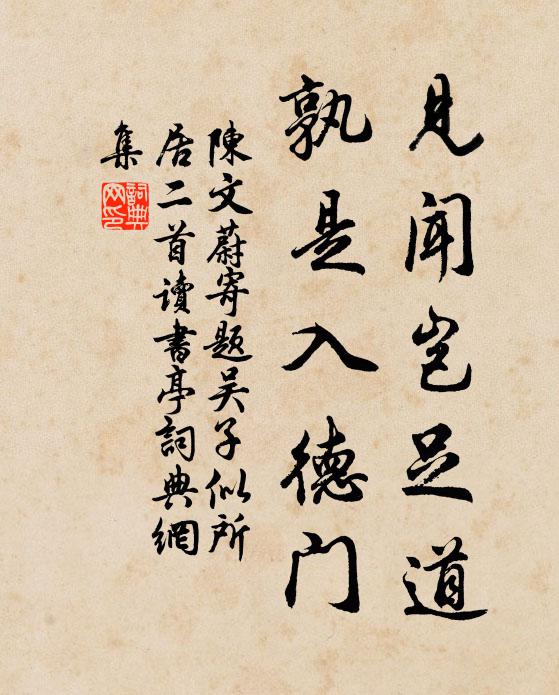 見聞豈足道
孰是入德门
陳文蔚寄題吴子似所
居二首讀書亭詞典網
集
詞典
网印